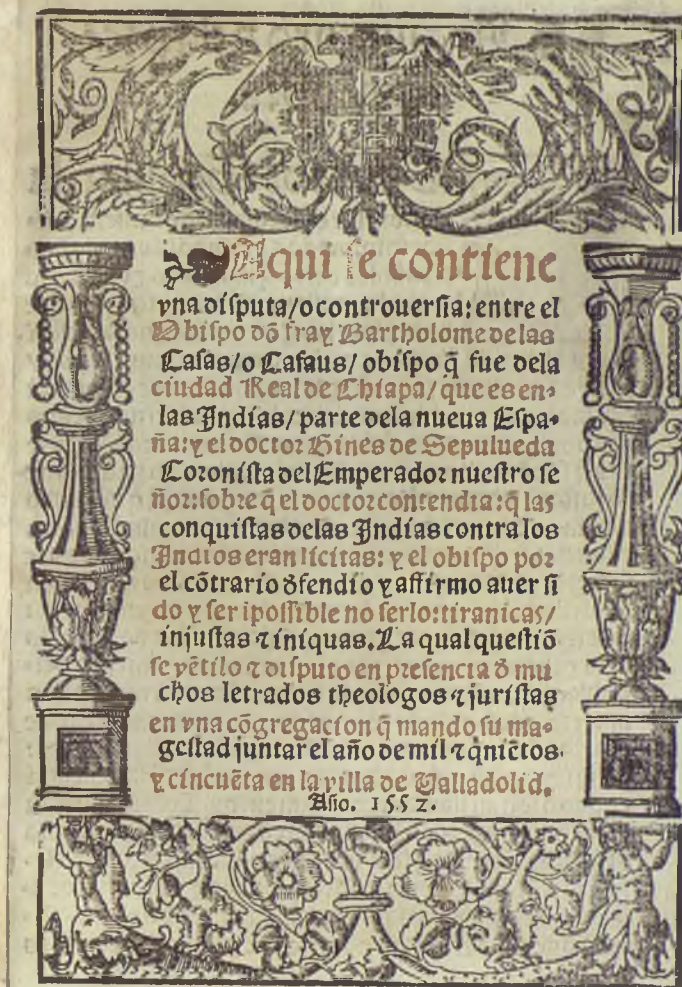 Aqui ſe contiene
vna diſputa/o controuerſia: entre el
Obiſpo dõ fray Bartholome de las
Caſas/o Caſaus/ obiſpo q̃ fue dela
ciudad Real de Chiapa/ que es en-
las Indias/ parte dela nueua Eſpa-
ña: y el doctor Gines de Sepulueda
Coroniſta del Emperador nueſtro ſe
ñor: ſobre q̃ el doctor contendia: q̃ las
conquiſtas delas Indias contra los
Indios eran licitas: y el obiſpo por
el cõtrario d̃fendio y affirmo auer ſi
do y ſer ĩpoſſible no ſerlo: tiranicas/
injuſtas ⁊ iniquas. La qual queſtiõ
ſe vẽtilo ⁊ diſputo en preſencia d̃ mu
chos letrados theologos ⁊ juriſtas
en vna cõgregacion q̃ mando ſu ma-
geſtad juntar el año de mil ⁊ q̃niẽtos.
y cincuẽta en la villa de Valladolid.
Año. 1552.